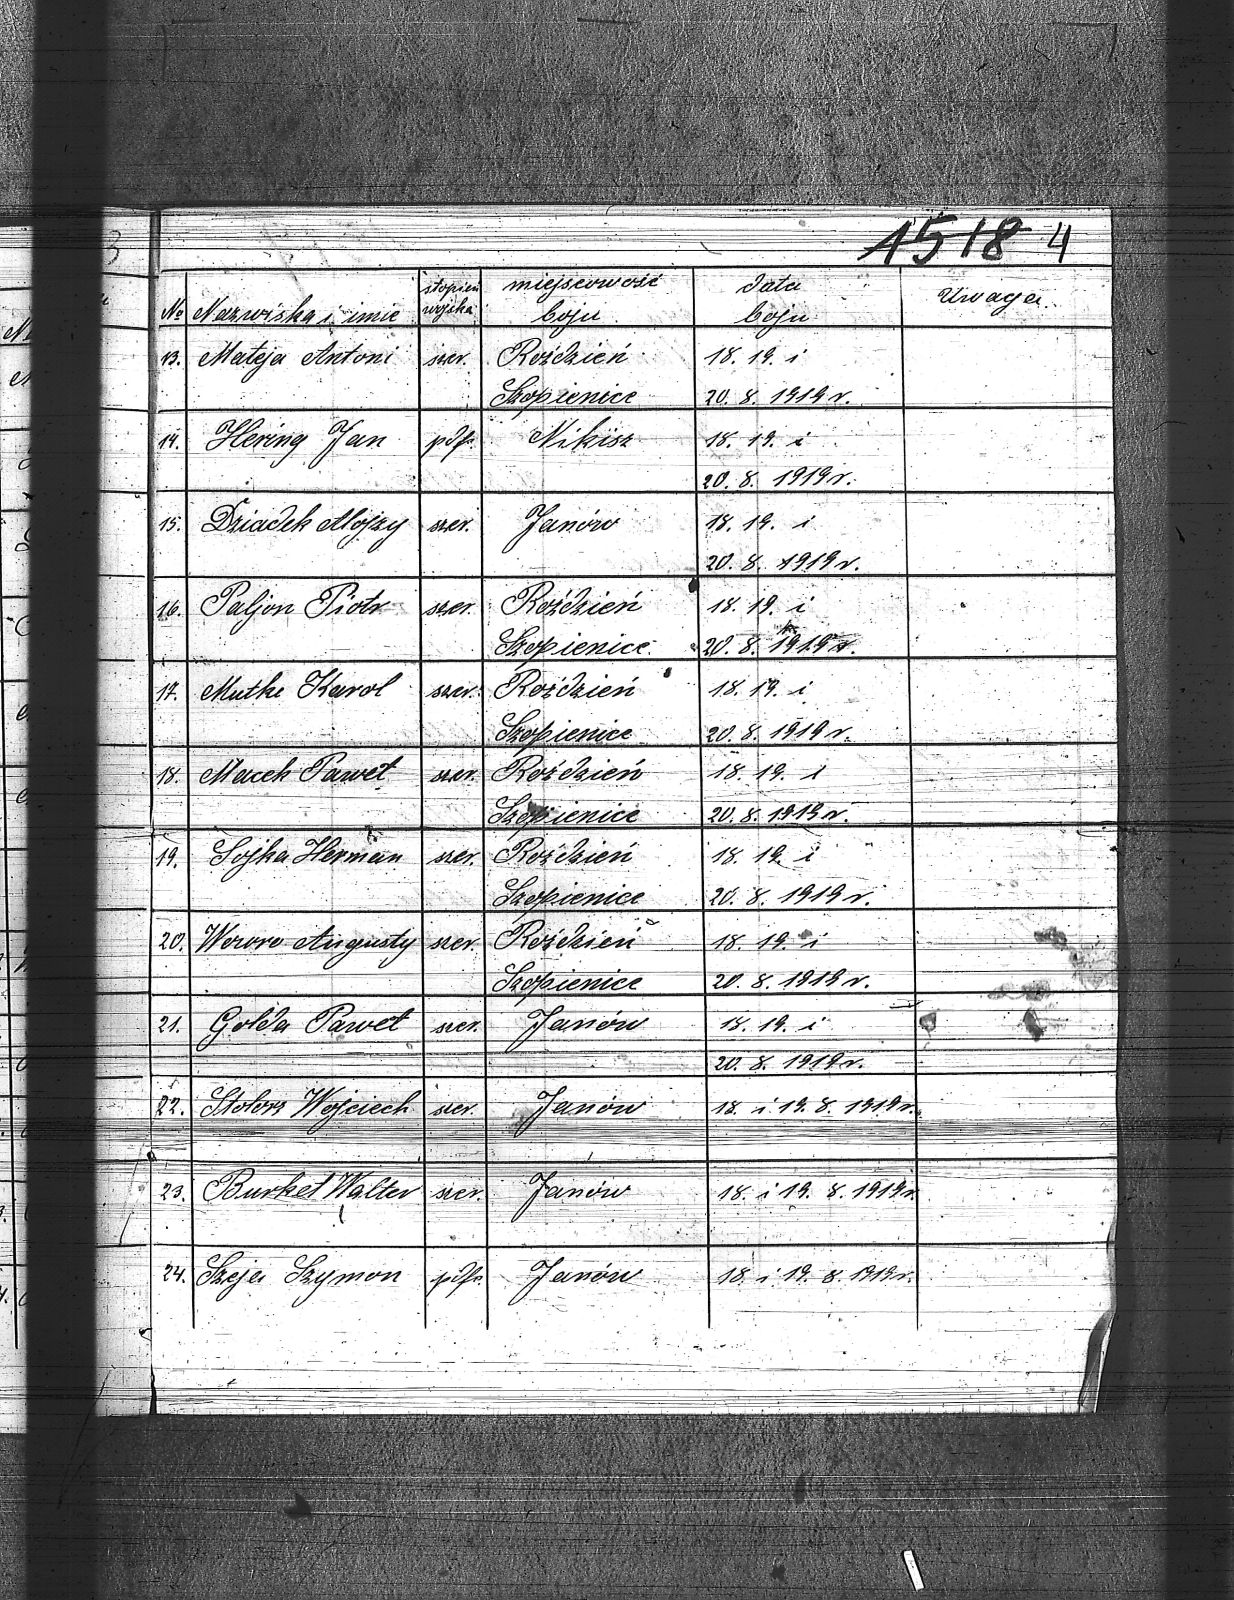 1518 4
№ Nazwiska i imie stopień wojska miejscowość boju data boju Uwaga
13. Mateja Antoni szer. Roździeń 18. 19. i
Szopienice 20. 8. 1919 r.
14. Hering Jan pdf. Nikisz 18. 19. i
20. 8. 1919 r.
15. Dziadek Alojzy szer. Janów 18. 19. i
20. 8. 1919 r.
16. Paljon Piotr szer. Roździeń 18. 19. i
Szopienice 20. 8. 1919 r.
17. Mutke Karol szer. Roździeń 18. 19. i
Szopienice 20. 8. 1919 r.
18. Macek Paweł szer. Roździeń 18. 19. i
Szopienice 20. 8. 1919 r.
19. Sojka Herman szer. Roździeń 18. 19. i
Szopienice 20. 8. 1919 r.
20. Augusty szer. Roździeń 18. 19. i
Szopienice 20. 8. 1919 r.
21. Golda Paweł szer. Janów 18. 19. i
20. 8. 1919 r.
22. Stolorz Wojciech szer. Janów 18. i 19. 8. 1919 r.
23. Burket Walter szer. Janów 18. i 19. 8. 1919 r.
24. Szeja Szymon pdf. Janów 18. i 19. 8. 1919 r.